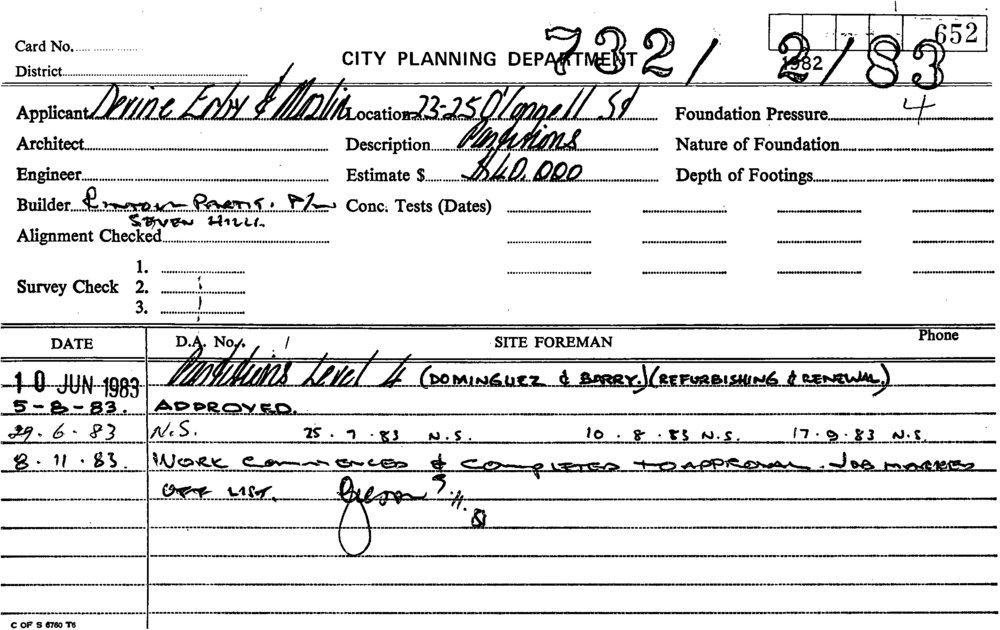 652
Card No. CITY PLANNING DEPARTMENT 732/2/83
1982
District
Applicant Devine Erby & Mazlin Location 23-25 O'Connell St Foundation Pressure
4
Architect Description Partitions Nature of Foundation
Engineer Estimate $ $40,000 Depth of Footings
Builder P/L Conc. Tests (Dates)
SEVEN HILLS.
Alignment Checked
1.
Survey Check 2.
3.
DATE D.A. No. SITE FOREMAN Phone
10 JUN 1983 Partitions Level 4 (DOMINGUEZ & BARRY.) (REFURBISHING & RENEWAL.)
5-8-83. APPROVED.
29.6.83 N.S. 25.7.83 N.S. 10.8.83 N.S. 17.9.83 N.S.
8.11.83. WORK COMMENCED & COMPLETED TO APPROVAL. JOB MARKED
OFF LIST.
C OF S 6760 T6